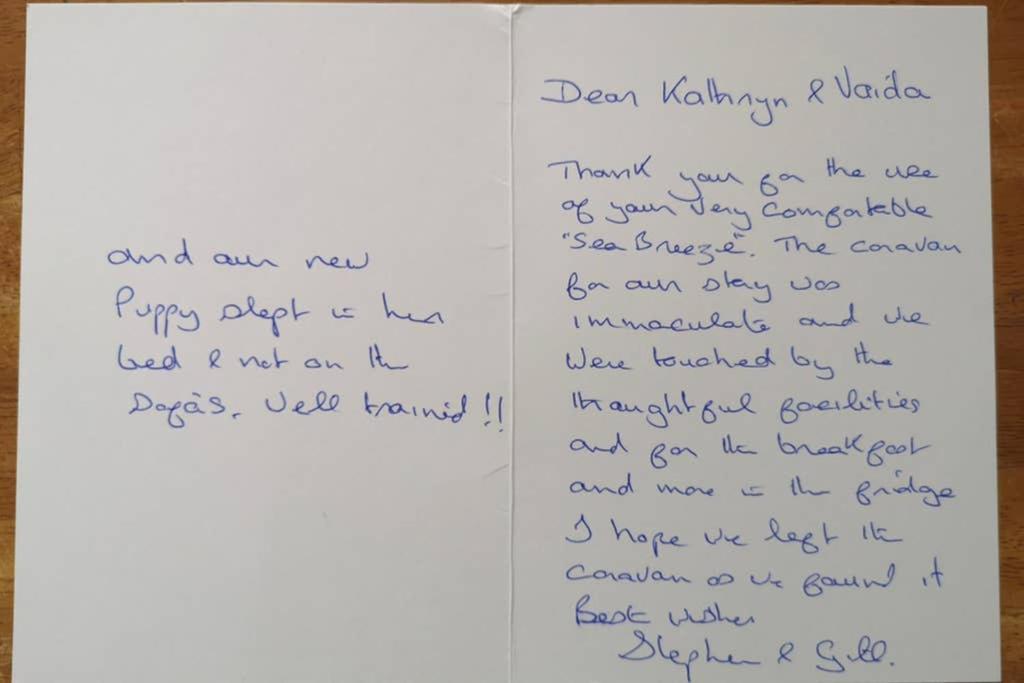 and our new
Puppy slept in her
bed & not on the
Sofa's. Well trained!!
Dear Kathryn & Vaida
Thank your for the use
of your very comfortable
"Sea Breeze". The caravan
for our stay was
immaculate and we
were touched by the
thoughtful facilities
and for the breakfast
and more in the fridge
I hope we left the
caravan as we found it
Best wishes
Stephen & Gill.